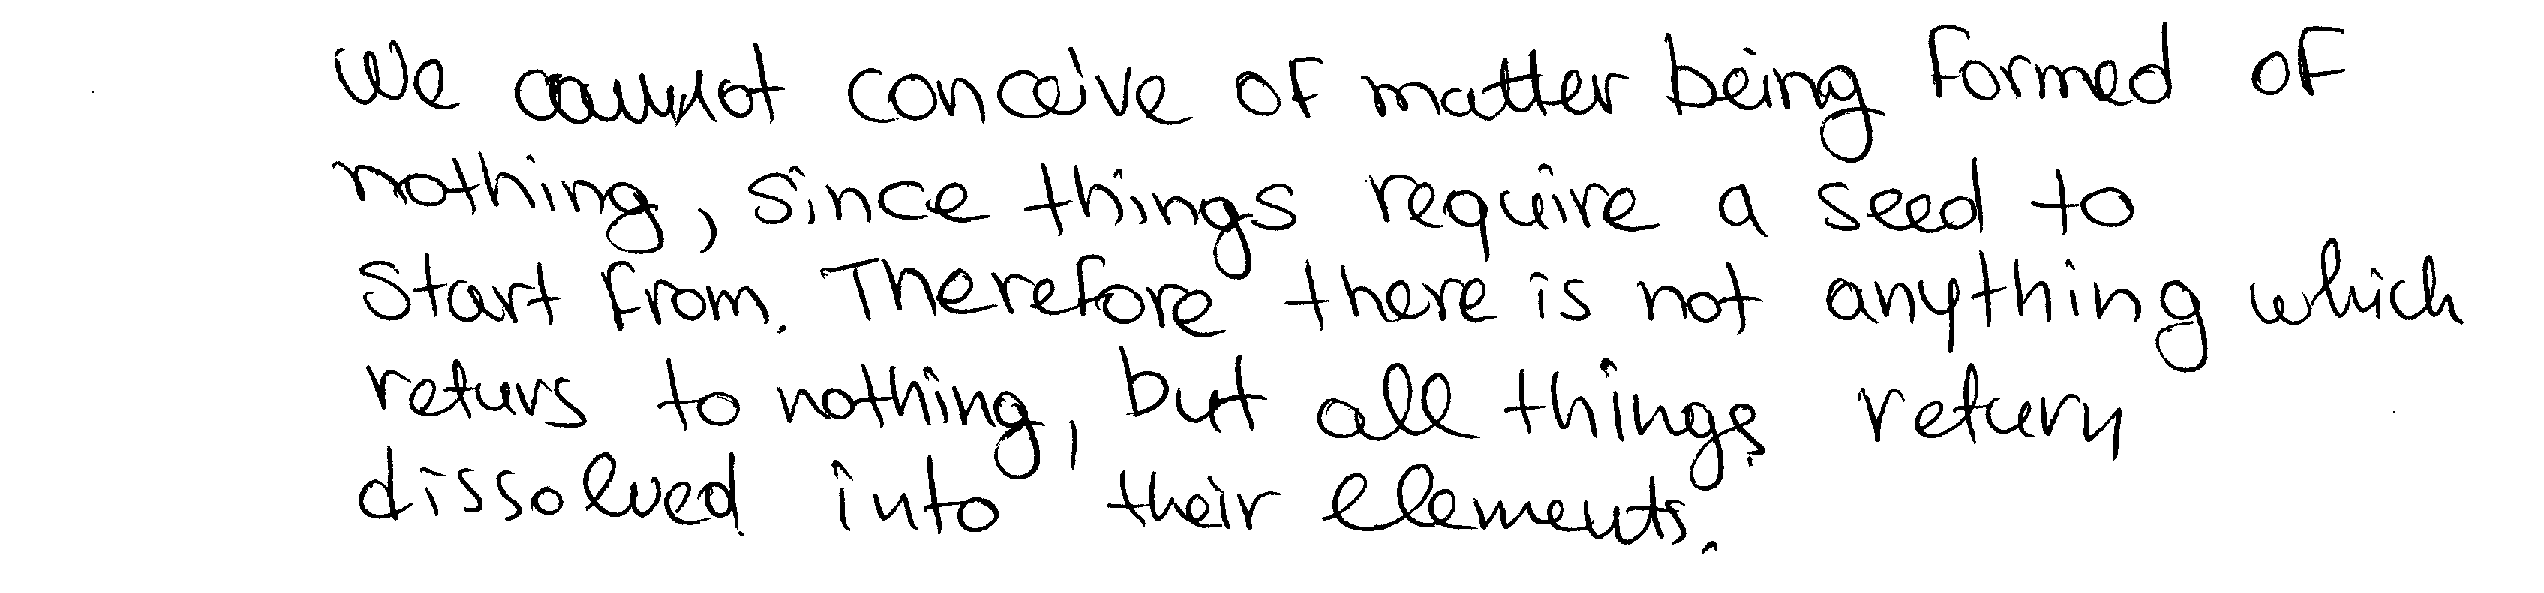 We cannot conceive of matter being formed of
nothing, since things require a seed to
start from. Therefore there is not anything which
returs to nothing, but all things return
dissolved into their elements.